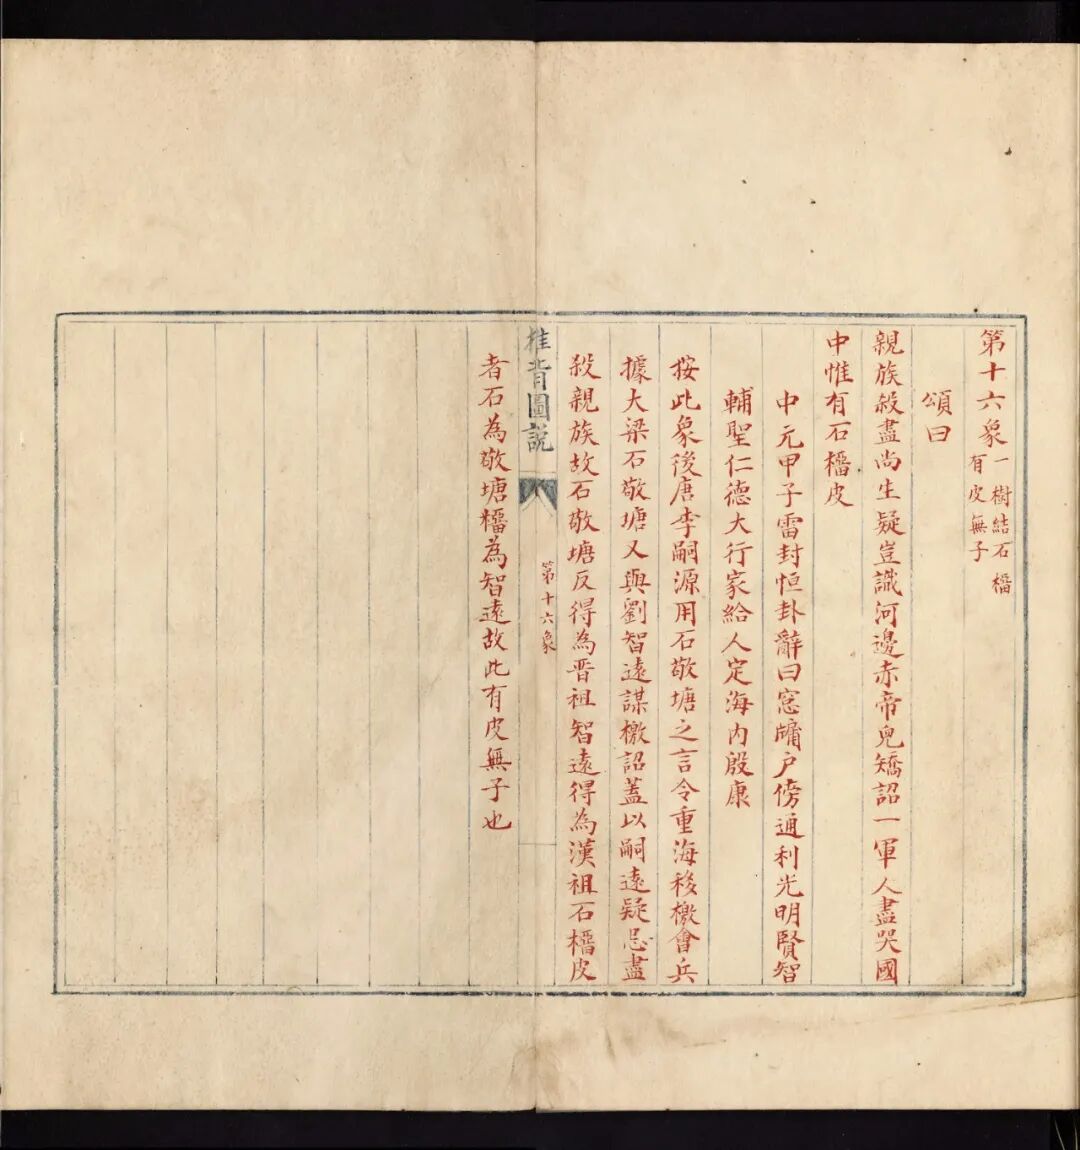 第十六象
一樹結石橊
有皮無子
頌曰
親族殺盡尚生疑豈識河邊赤帝兒矯詔一軍人盡哭國
中惟有石橊皮
中元甲子雷封恒卦辭曰窓牗戶傍通利光明賢智
輔聖仁德大行家給人定海内殷康
按此象後唐李嗣源用石敬塘之言令重海移檄會兵
據大梁石敬塘又與劉智遠謀檄詔蓋以嗣遠疑忌盡
殺親族故石敬塘反得為晋祖智遠得為漢祖石橊皮
推背圖說
第十六象
者石為敬塘橊為智遠故此有皮無子也